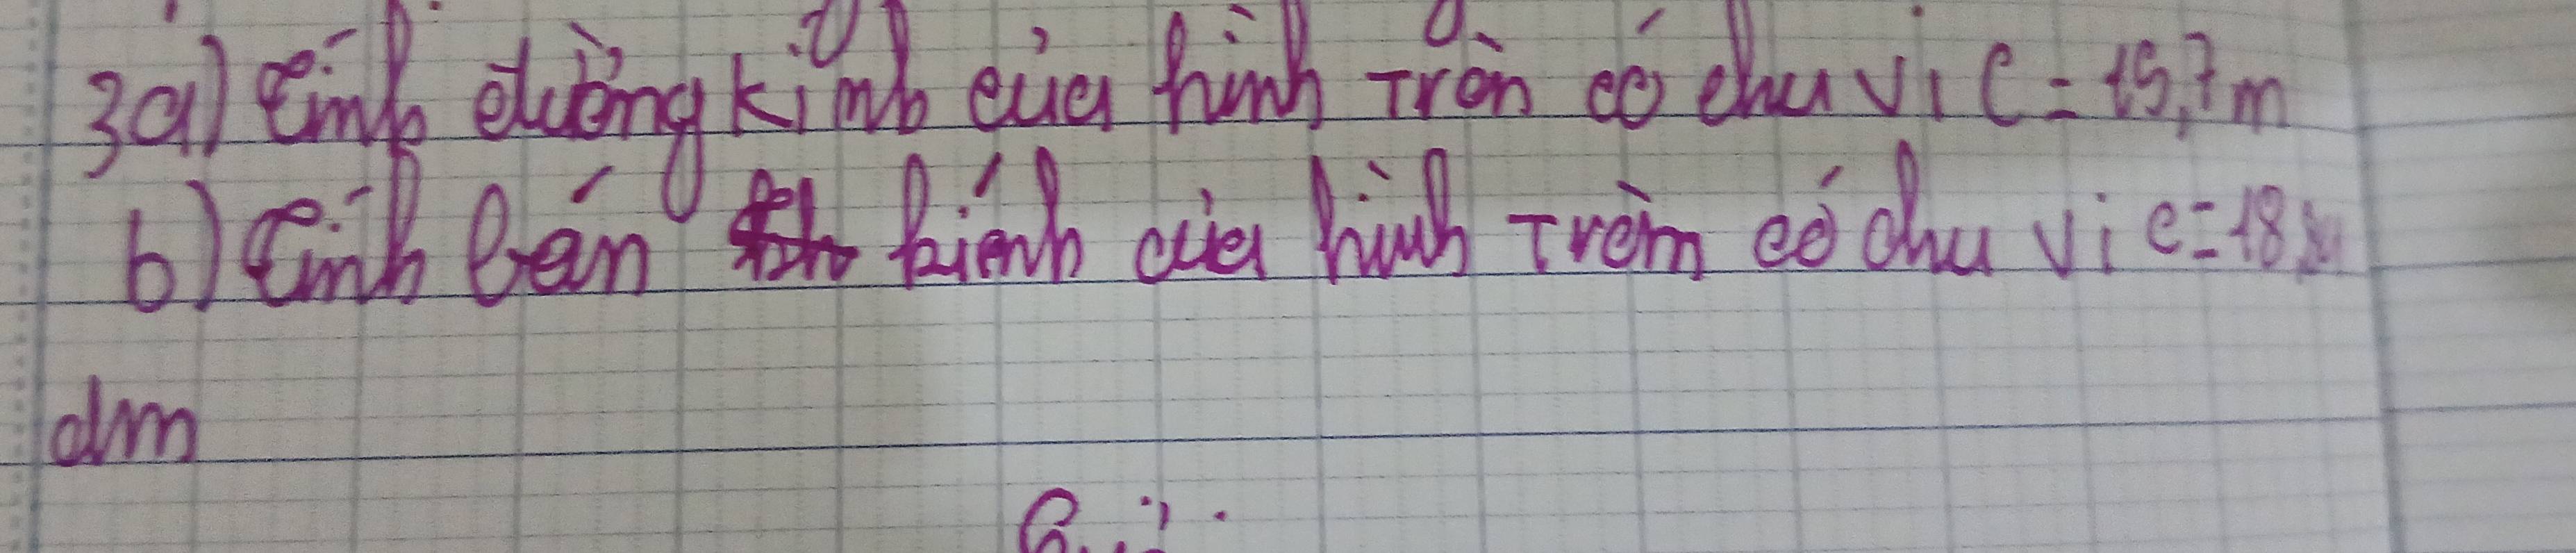 3a) Tính đường kính của hình tròn có chu vi C = 15,7 m
b) Tính bán kính của hình tròn có chu vi C = 18,84
dm